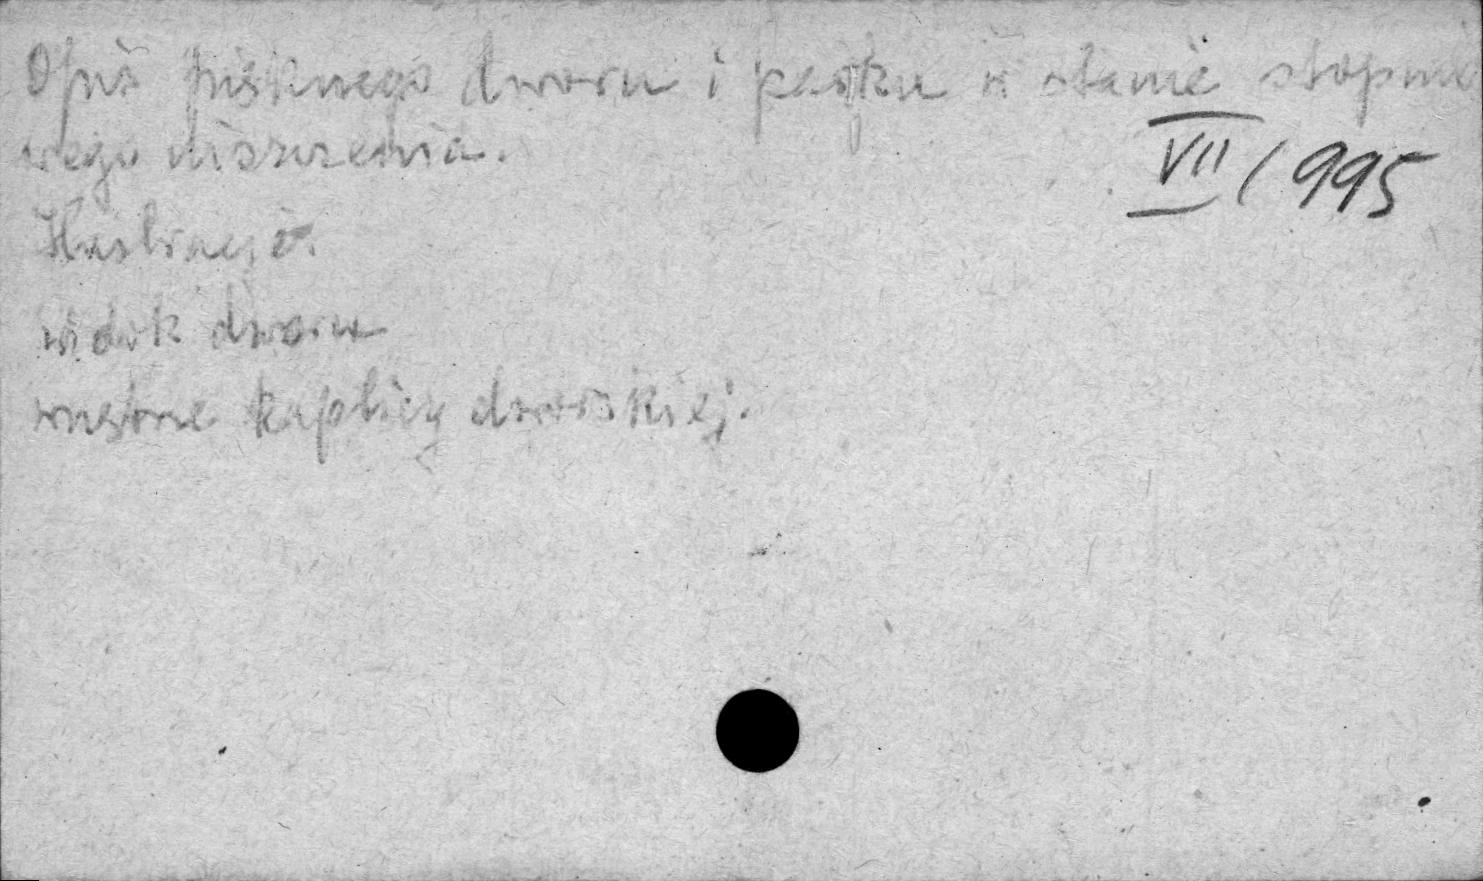 Opis pięknego dworu i parku w stanie stopnio
wego niszczenia.
VII/995
Ilustracje.
widok dworu
wnętrze kaplicy dworskiej.